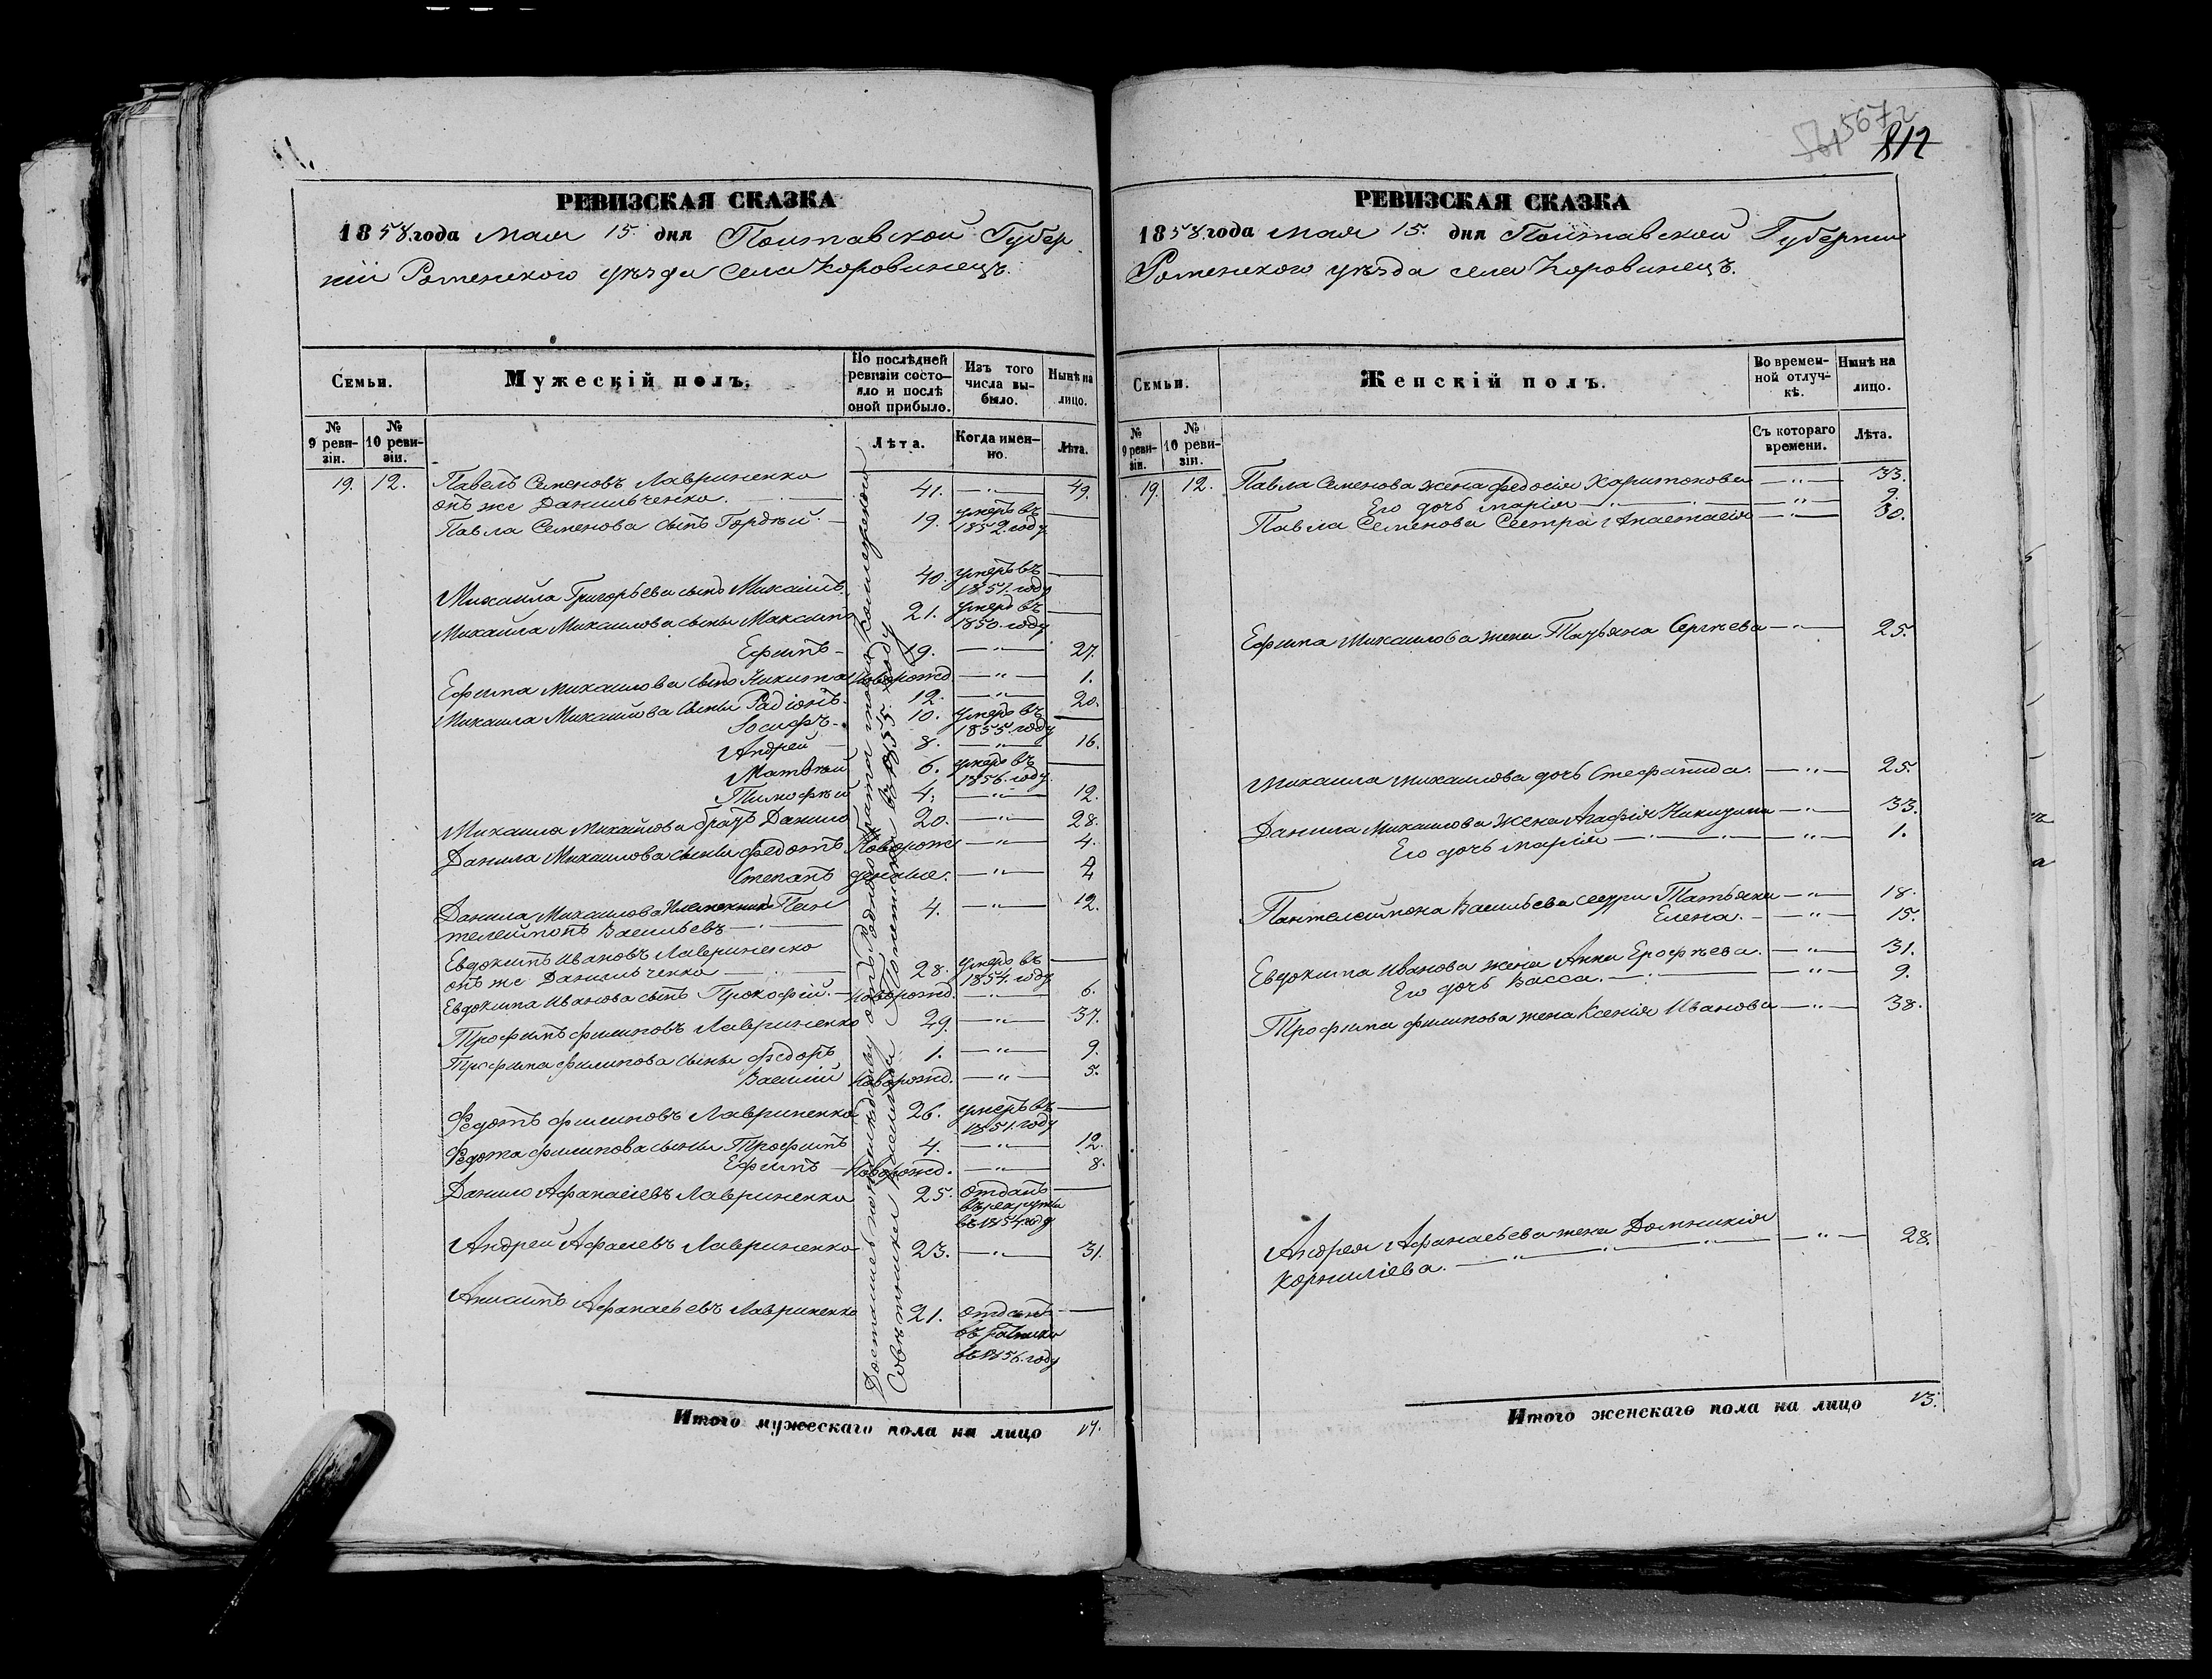 567
812
РЕВИЗСКАЯ СКАЗКА
1858 года мая 15. дня Полтавской Губер
ніи Роменского уѣзда Села Коровинецъ.
Семьи.
Мужескій полъ.
По послѣдней ревизіи состояло и послѣ оной прибыло.
Изъ того числа выбыло.
Нынѣ на лицо.
№ 9 ревизіи.
№ 10 ревизіи.
Лѣта.
Когда именно.
Лѣта.
19. 12. Павелъ Семеновъ Лавриненко
онъ же Данильченко. 41. —"— 49.
Павла Семенова сынъ Гордѣй. 19. умеръ въ 1852. году —
Михаила Григорьева сынъ Михаилъ. 40. умеръ въ 1851. году —
Михаила Михаилова сыны Максимъ 21. умеръ въ 1850. году —
Ефимъ 19. —"— 27.
Ефима Михаилова сынъ Никита новорожд. —"— 1.
Михаила Михаилова сыны Радіонъ. 12. —"— 20.
Іосифъ. 10. умеръ въ 1855. году —
Андрей 8. —"— 16.
Матвѣй 6. умеръ въ 1856. году —
Тимофѣй 4. —"— 12.
Михаила Михайлова братъ Данило 20. —"— 28.
Данила Михаилова сыны Федотъ Новорож —"— 4.
Степанъ денные. —"— 4
Данила Михаилова племянникъ Пан
телеймонъ Васильевъ 4. —"— 12.
Евдокимъ Ивановъ Лавриненко
онъ же Данильченко 28. умеръ въ 1854. году —
Евдокима Иванова сынъ Прокофій. новорожд. —"— 6.
Трофимъ Филиповъ Лавриненко 29. —"— 37.
Трофима Филипова сыны Федоръ 1. —"— 9.
Василій Новорожд. —"— 5.
Федотъ Филиповъ Лавриненко 26. умеръ въ 1851. году —
Федота Филипова сыны Трофимъ 4. —"— 12.
Ефимъ Новорожд. —"— 8.
Данило Афанасіевъ Лавриненко 25. отданъ въ рекруты въ 1854 году —
Андрей Афасіевъ Лавриненко 23. —"— 31.
Анисимъ Афанасьевъ Лавриненко 21. отданъ въ ратники въ 1856. году —
Достались по наслѣдству отъ родного брата
Совѣтника въ 1855. году
Итого мужескаго пола на лицо 17.
РЕВИЗСКАЯ СКАЗКА
1858 года мая 15. дня Полтавской Губерніи
Роменского уѣзда села Коровинецъ.
Семьи.
Женскій полъ.
Во временной отлучкѣ.
Нынѣ на лицо.
№ 9 ревизіи.
№ 10 ревизіи.
Съ котораго времени.
Лѣта.
19. 12. Павла Семенова жена Федосія Харитонова —"— 33.
Его дочь Марія —"— 9.
Павла Семенова Сестра Анастасія —"— 30.
Ефима Михаилова жена Татьяна Сергѣева —"— 25.
Михаила Михаилова дочь Стефанида. —"— 25.
Данила Михаилова жена Агафія Никитина —"— 33.
Его дочь Марія —"— 1.
Пантелеймона Васильева сестри Татьяна —"— 18.
Елена. —"— 15.
Евдокима Иванова жена Анна Ерофѣева. —"— 31.
Его дочь Васса. —"— 9.
Трофима Филипова жена Ксенія Иванова —"— 38.
Андрея Афанасьева жена Домникія
Корниліева. —"— 28.
Итого женскаго пола на лицо 13.